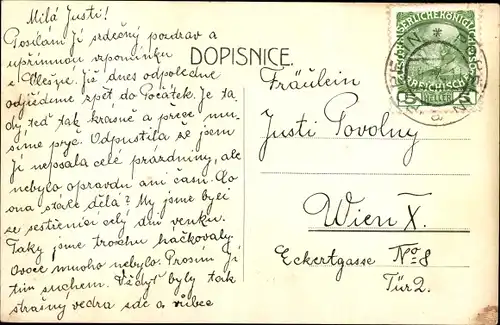 Milá Justi!
Posílám Ti srdečný pozdrav a
upřímnou vzpomínku
z Olešné. Již dnes odpoledne
odjedeme zpět do Počátek. Je ta-
dy teď tak krásně a přece mu-
síme pryč. Odpustila se jsem
Ti nepsala celé prázdniny, ale
nebylo opravdu ani času. Co
ona stále dělá? My jsme byli
se sestřenicí celý den venku.
Taky jsme trochu háčkovaly.
Ovoce mnoho nebylo. Prosím Tě
tím suchem. Vždyť byly tak
strašný vedra zde a vůbec
DOPISNICE.
Fräulein
Justi Povolny
Wien X.
Eckertgasse No 8
Tür 2.